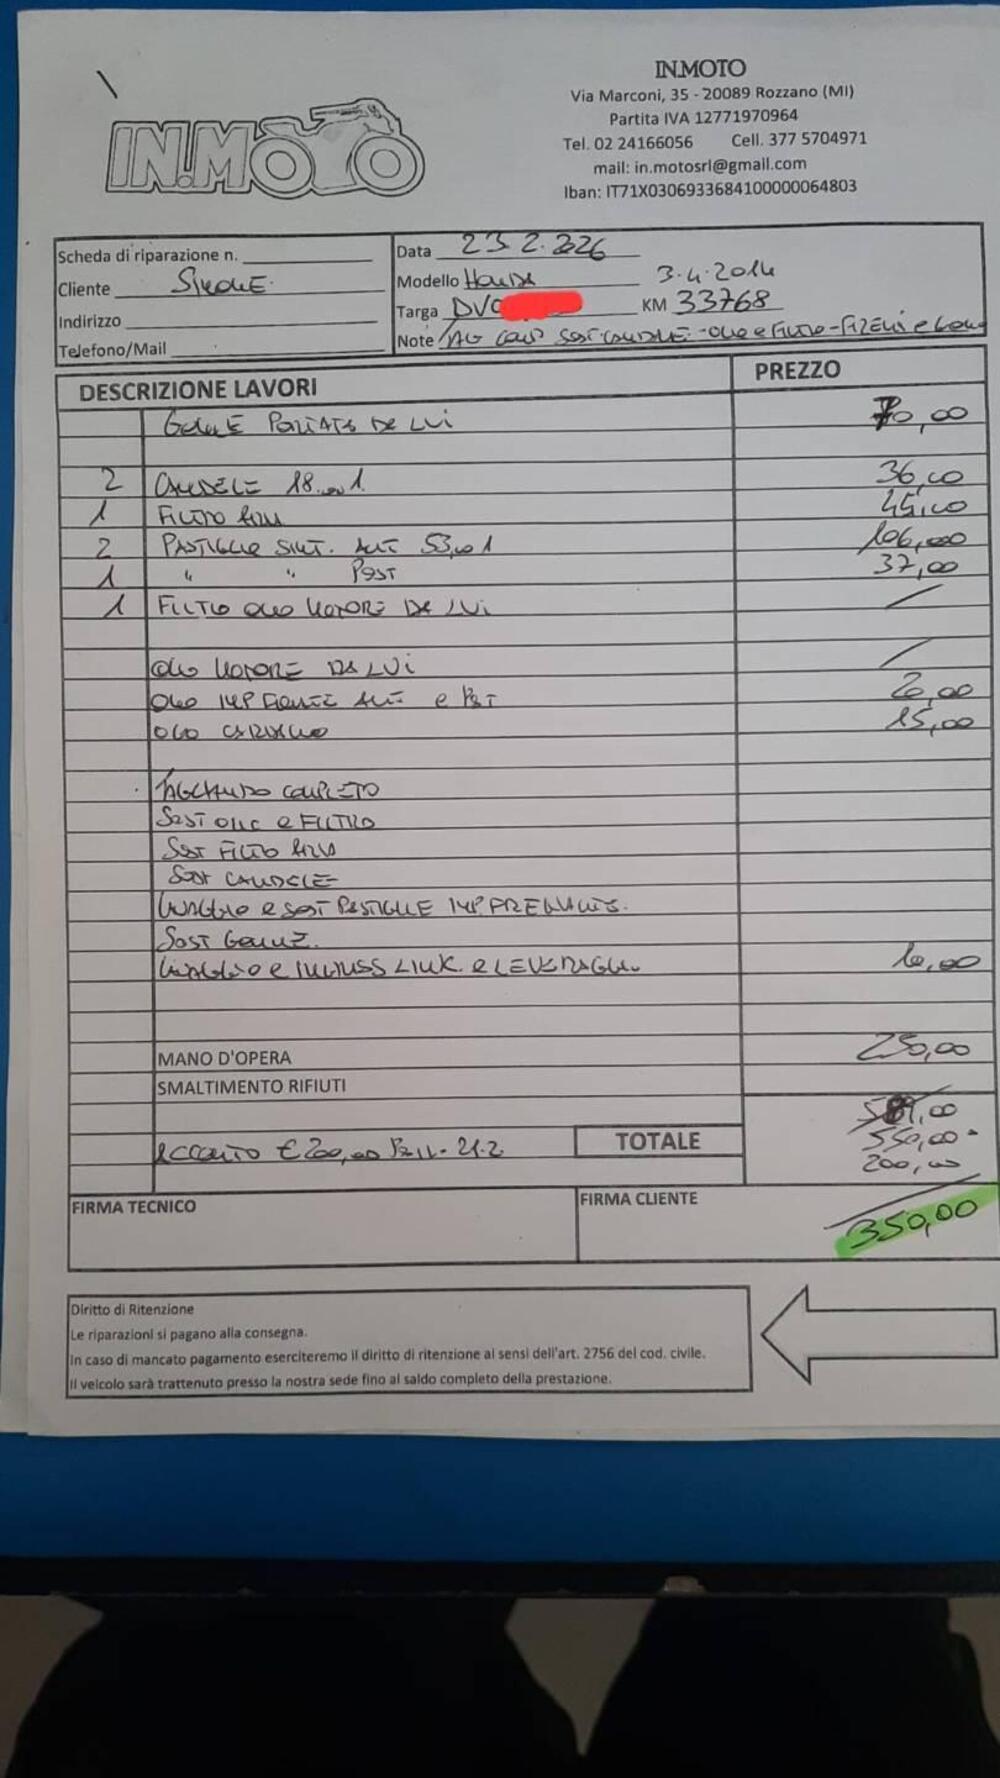 IN.MOTO
IN.MOTO
Via Marconi, 35 - 20089 Rozzano (MI)
Partita IVA 12771970964
Tel. 02 24166056 Cell. 377 5704971
mail: in.motosrl@gmail.com
Iban: IT71X0306933684100000064803
Scheda di riparazione n.
Cliente SIMONE
Indirizzo
Telefono/Mail
Data 23.2.2026
Modello HONDA 3.4.2014
Targa DVC KM 33768
Note TAG COMP SOST CANDELE - OLIO e FILTRO - FRENI e
DESCRIZIONE LAVORI PREZZO
GOMME PORTATE DA LUI 70,00
2 CANDELE 18,00 1 36,00
1 FILTRO ARIA 45,00
2 PASTIGLIE SINT. ANT 53,00 1 106,00
1 " " POST 37,00
1 FILTRO OLIO MOTORE DA LUI /
OLIO MOTORE DA LUI /
OLIO IMP FRENI ANT e POST 20,00
OLIO 15,00
TAGLIANDO COMPLETO
SOST OLIO e FILTRO
SOST FILTRO ARIA
SOST CANDELE
LAVAGGIO e SOST PASTIGLIE IMP. FRENANTE.
SOST GOMME.
LAVAGGIO e LINK. e LEVERAGGI 10,00
MANO D'OPERA 250,00
SMALTIMENTO RIFIUTI
589,00
550,00
ACCONTO € 200,00 21.2 TOTALE
200,00
FIRMA TECNICO FIRMA CLIENTE
350,00
Diritto di Ritenzione
Le riparazioni si pagano alla consegna.
In caso di mancato pagamento eserciteremo il diritto di ritenzione ai sensi dell'art. 2756 del cod. civile.
Il veicolo sarà trattenuto presso la nostra sede fino al saldo completo della prestazione.